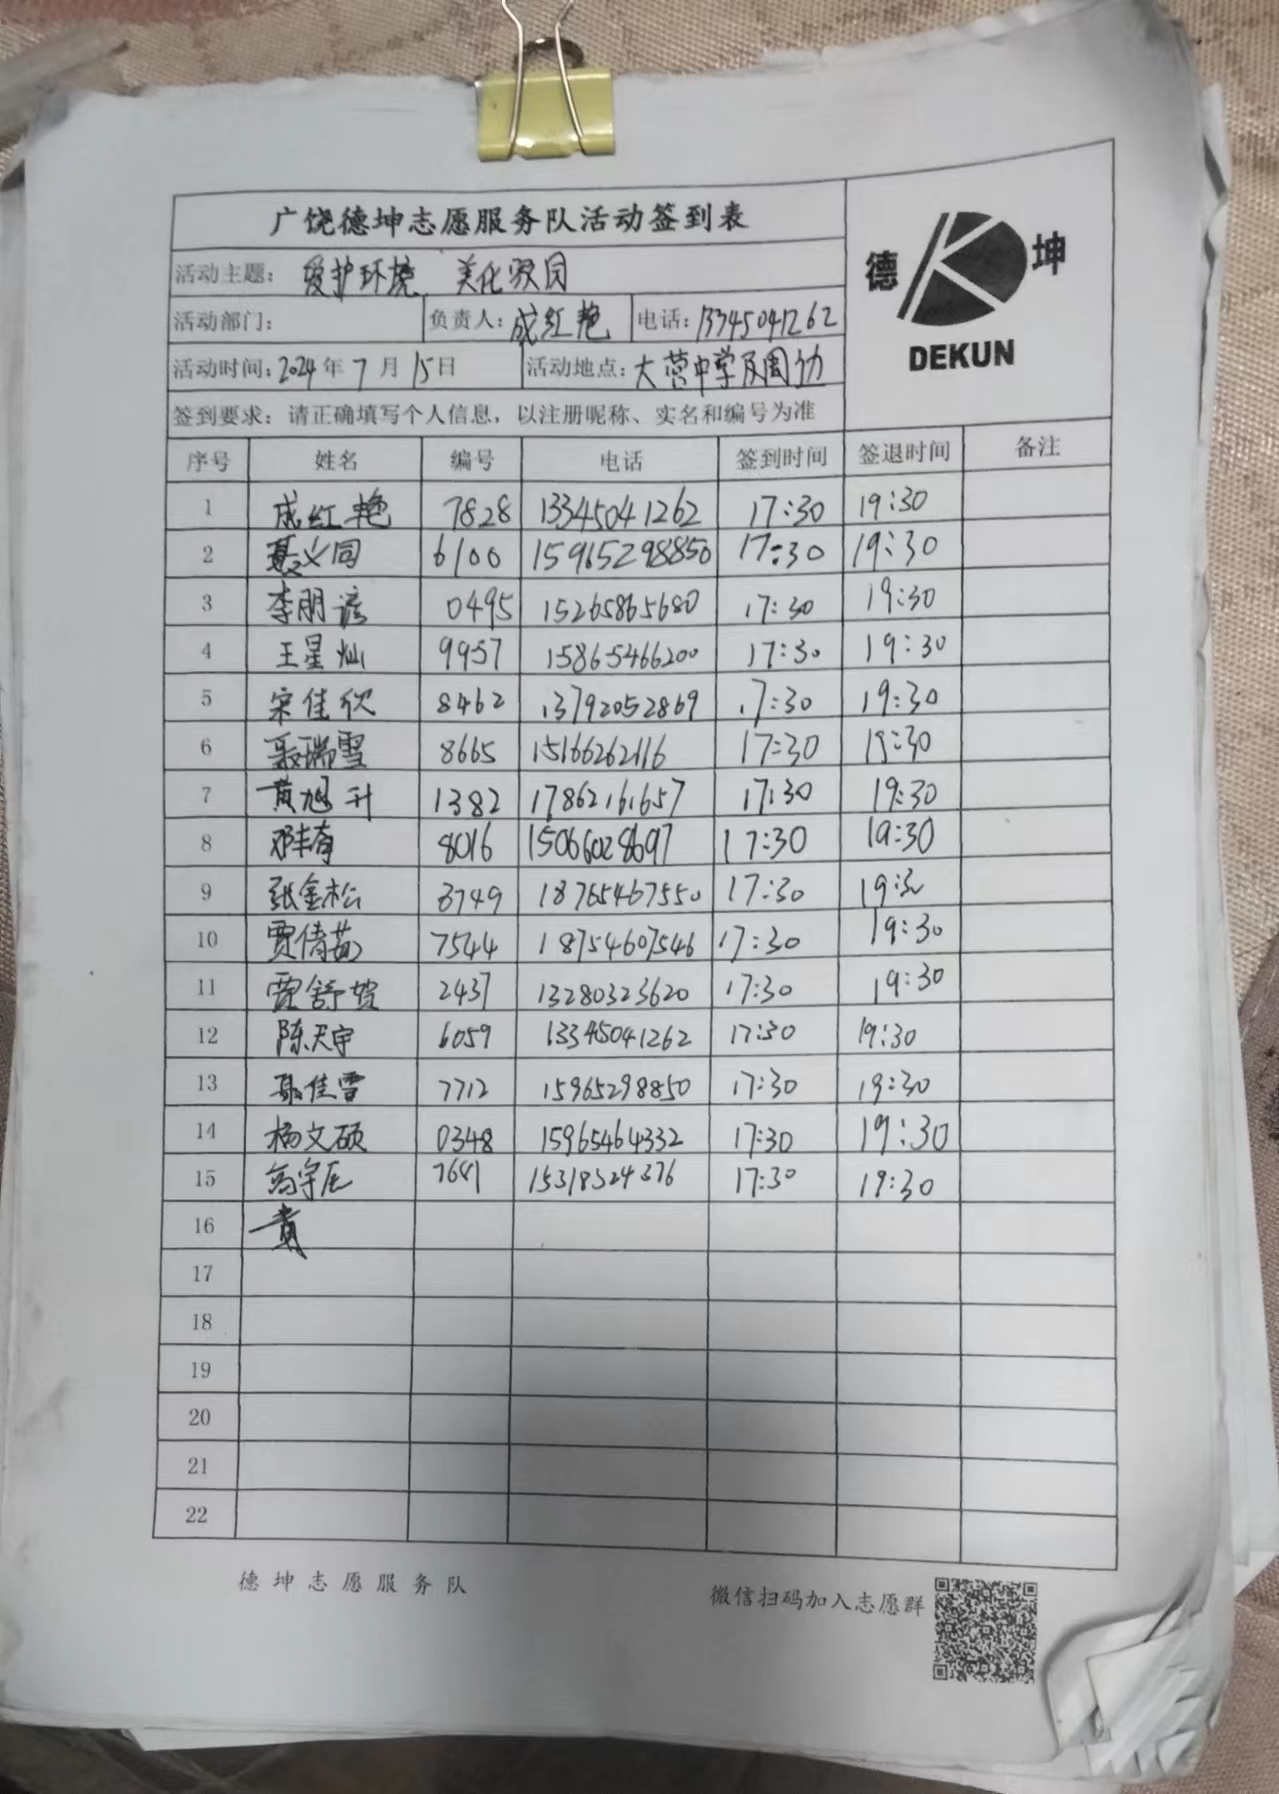 广饶德坤志愿服务队活动签到表
德 坤
DEKUN
活动主题: 爱护环境 美化家园
活动部门: 负责人: 成红艳 电话: 13345041262
活动时间: 2024年 7月 15日 活动地点: 大营中学及周边
签到要求: 请正确填写个人信息, 以注册昵称、实名和编号为准
序号 姓名 编号 电话 签到时间 签退时间 备注
1 成红艳 7828 13345041262 17:30 19:30
2 聂义同 6100 15965298850 17:30 19:30
3 李朋谚 0495 15265865680 17:30 19:30
4 王星灿 9957 15865466200 17:30 19:30
5 宋佳欣 8462 13792052869 17:30 19:30
6 聂瑞雪 8665 15166262116 17:30 19:30
7 黄旭升 1382 17862161657 17:30 19:30
8 邓丰 8016 15066028697 17:30 19:30
9 张金松 3749 18765467550 17:30 19:30
10 贾倩茹 7544 18754607546 17:30 19:30
11 贾舒 2437 13280323620 17:30 19:30
12 陈天宇 6059 13345041262 17:30 19:30
13 聂佳雪 7712 15965298850 17:30 19:30
14 杨文硕 0348 15965464332 17:30 19:30
15 高宇辰 7641 15318324376 17:30 19:30
16
17
18
19
20
21
22
德坤志愿服务队 微信扫码加入志愿群